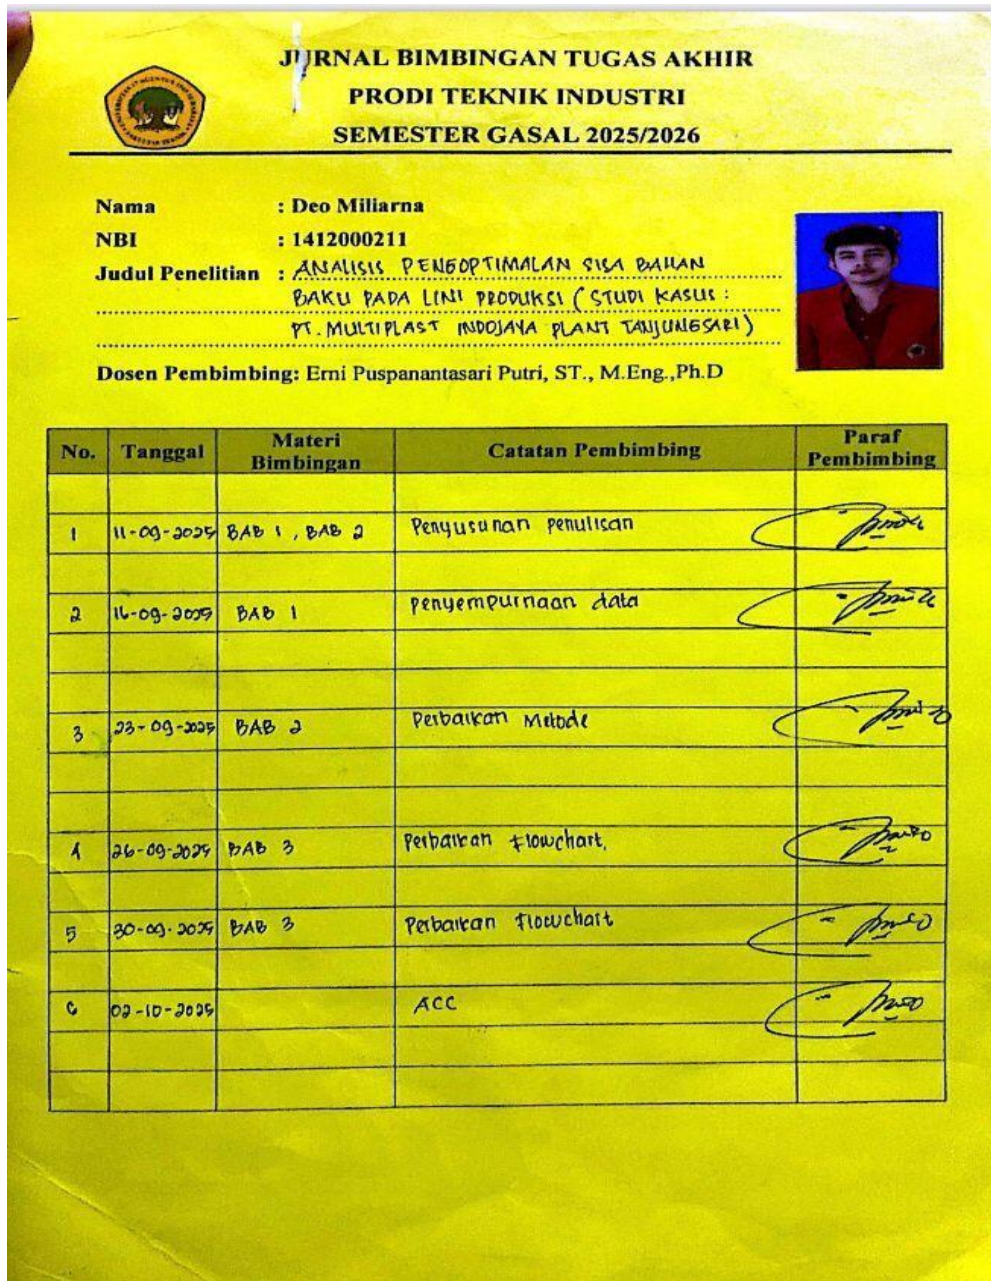 JURNAL BIMBINGAN TUGAS AKHIR
PRODI TEKNIK INDUSTRI
SEMESTER GASAL 2025/2026
Nama : Deo Miliarna
NBI : 1412000211
Judul Penelitian : ANALISIS PENGOPTIMALAN SISA BAHAN
BAKU PADA LINI PRODUKSI (STUDI KASUS :
PT. MULTIPLAST INDOJAYA PLANT TANJUNGSARI)
Dosen Pembimbing: Erni Puspanantasari Putri, ST., M.Eng.,Ph.D
No. Tanggal Materi Bimbingan Catatan Pembimbing Paraf Pembimbing
1 11-09-2025 BAB 1 , BAB 2 Penyusunan penulisan
2 16-09-2025 BAB 1 penyempurnaan data
3 23-09-2025 BAB 2 Perbaikan Metode
4 26-09-2025 BAB 3 Perbaikan flowchart.
5 30-09-2025 BAB 3 Perbaikan flowchart
6 02-10-2025 ACC